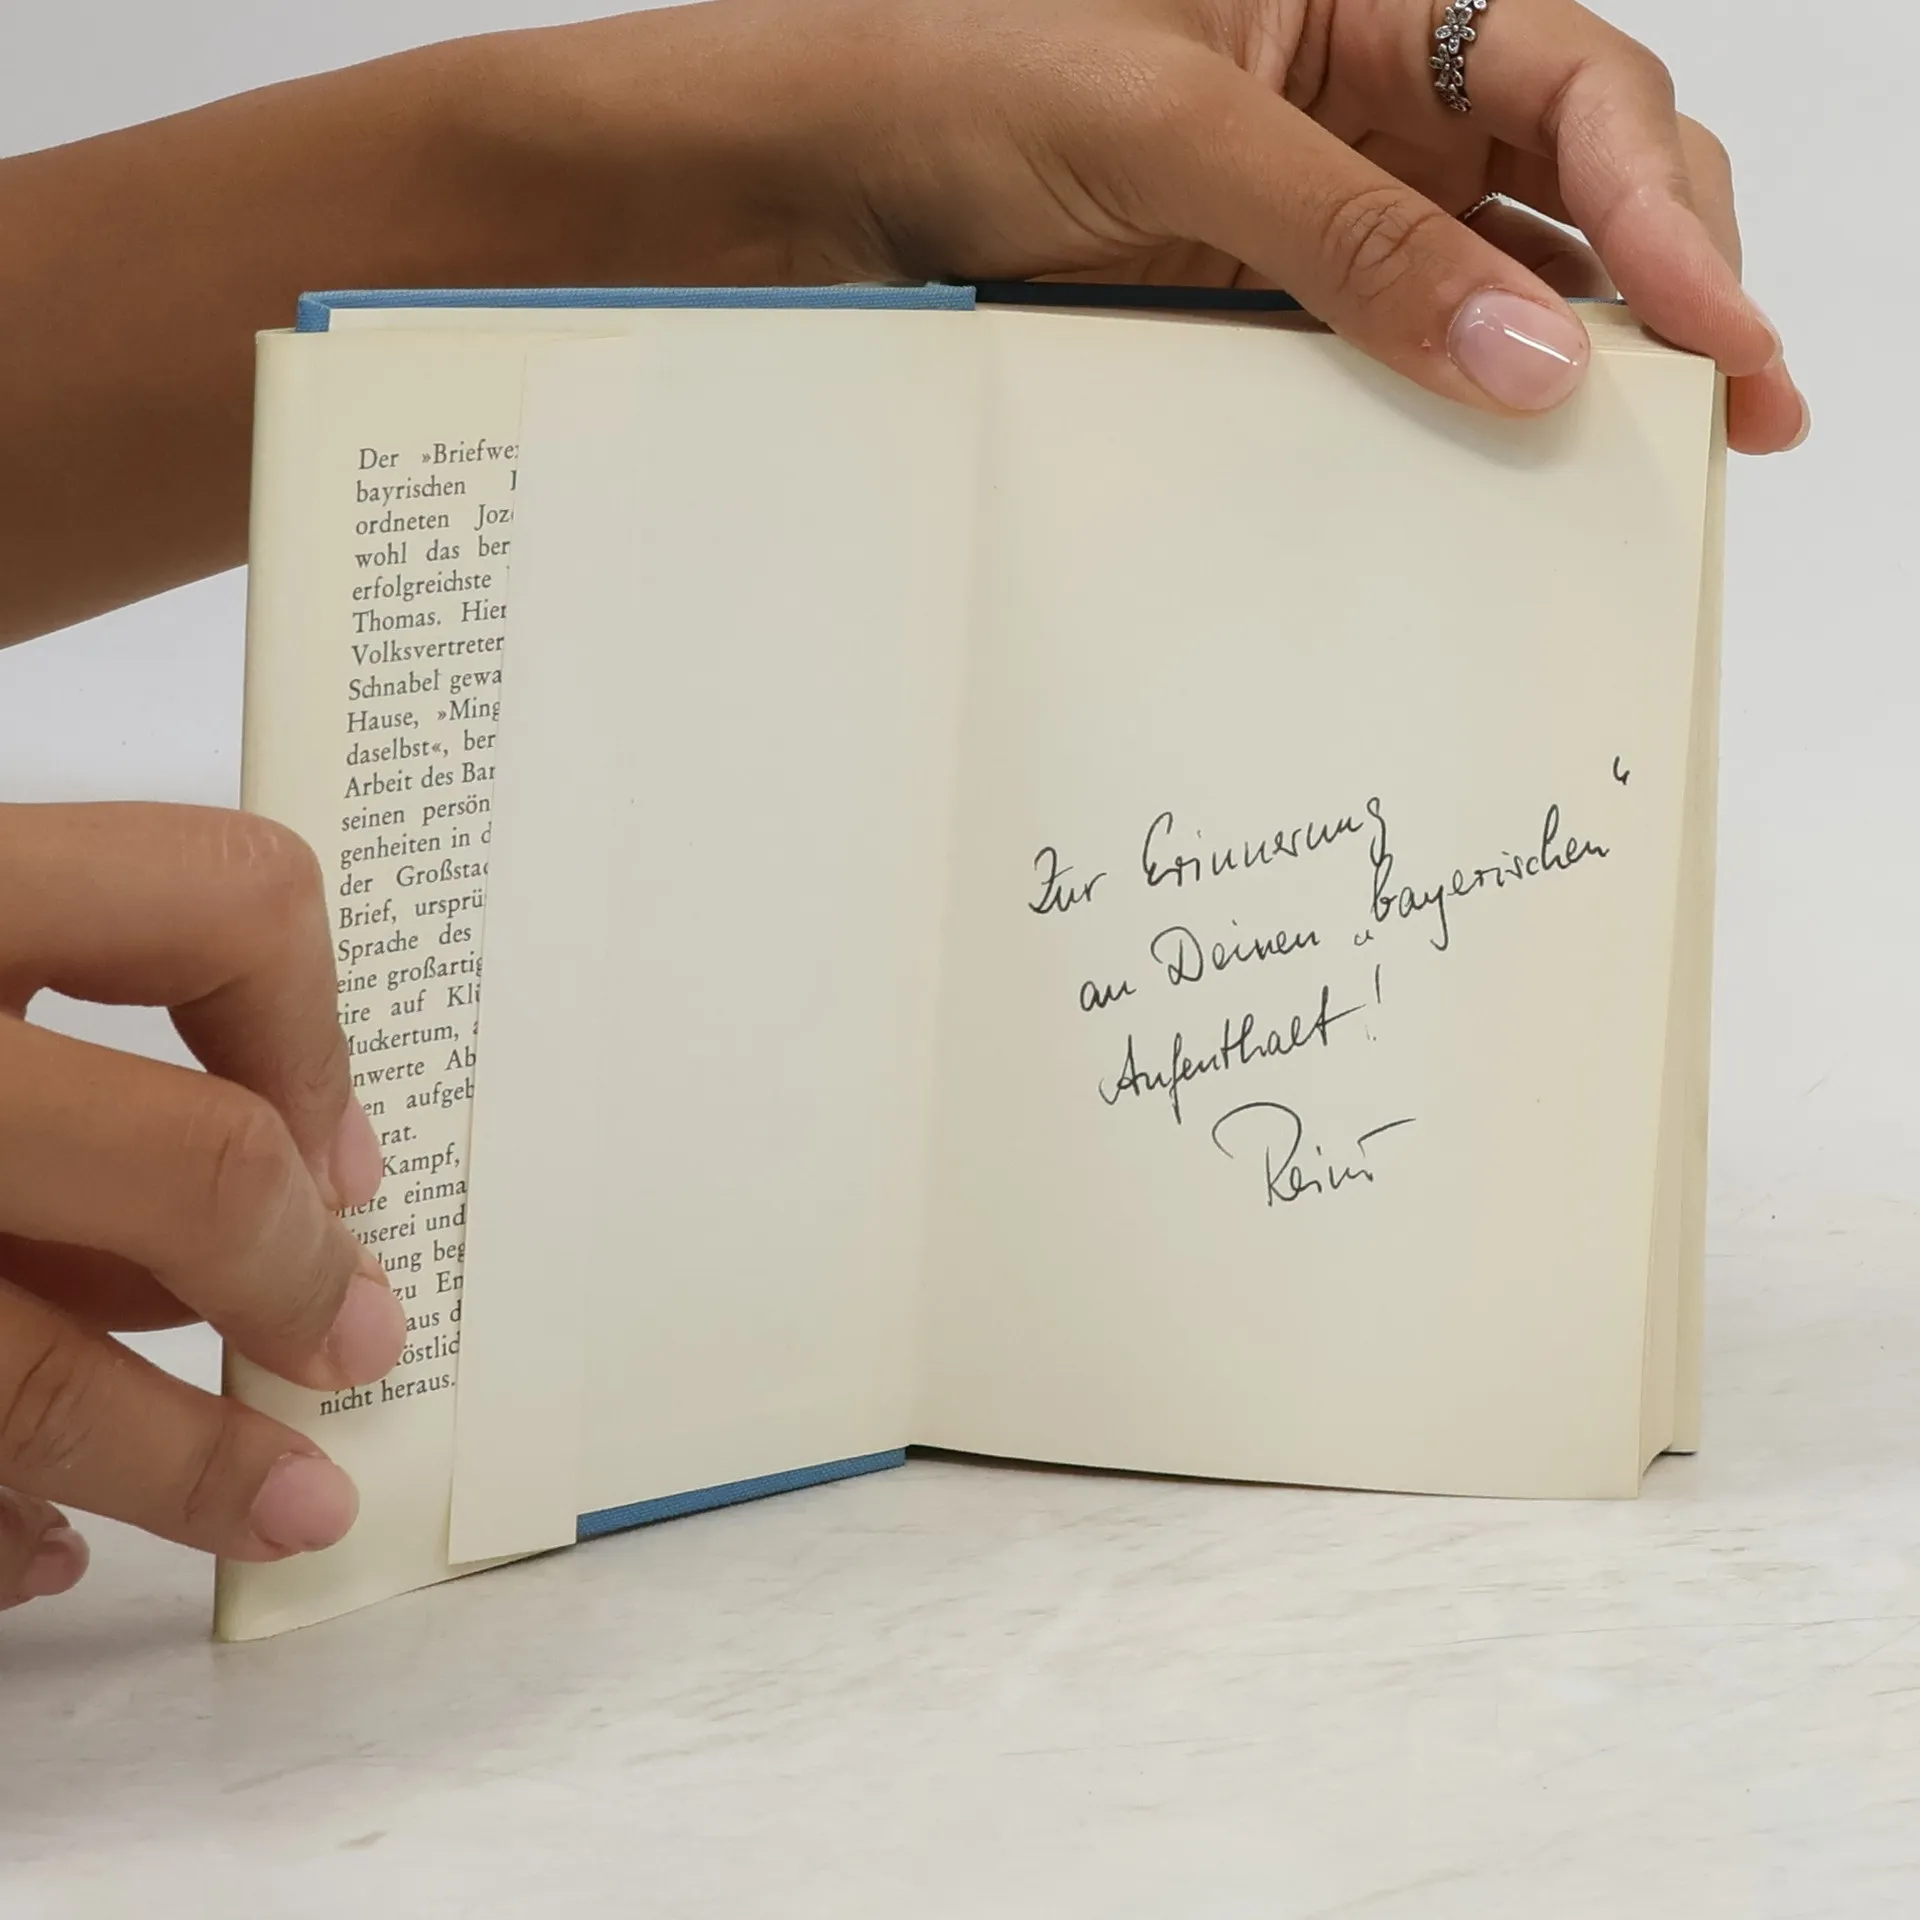 Der »Briefwe
bayrischen
ordneten Joz
wohl das ber
erfolgreichste
Thomas. Hier
Volksvertreter
Schnabel gewa
Hause, »Ming
daselbst«, ber
Arbeit des Bar
seinen persön
genheiten in d
der Großstad
Brief, ursprü
Sprache des
eine großartig
tire auf Kli
Muckertum, a
nwerte Ab
en aufgeb
rat.
Kampf,
riefe einma
userei und
lung beg
zu En
aus d
östlich
nicht heraus.
Zur Erinnerung
an Deinen „bayerischen“
Aufenthalt!